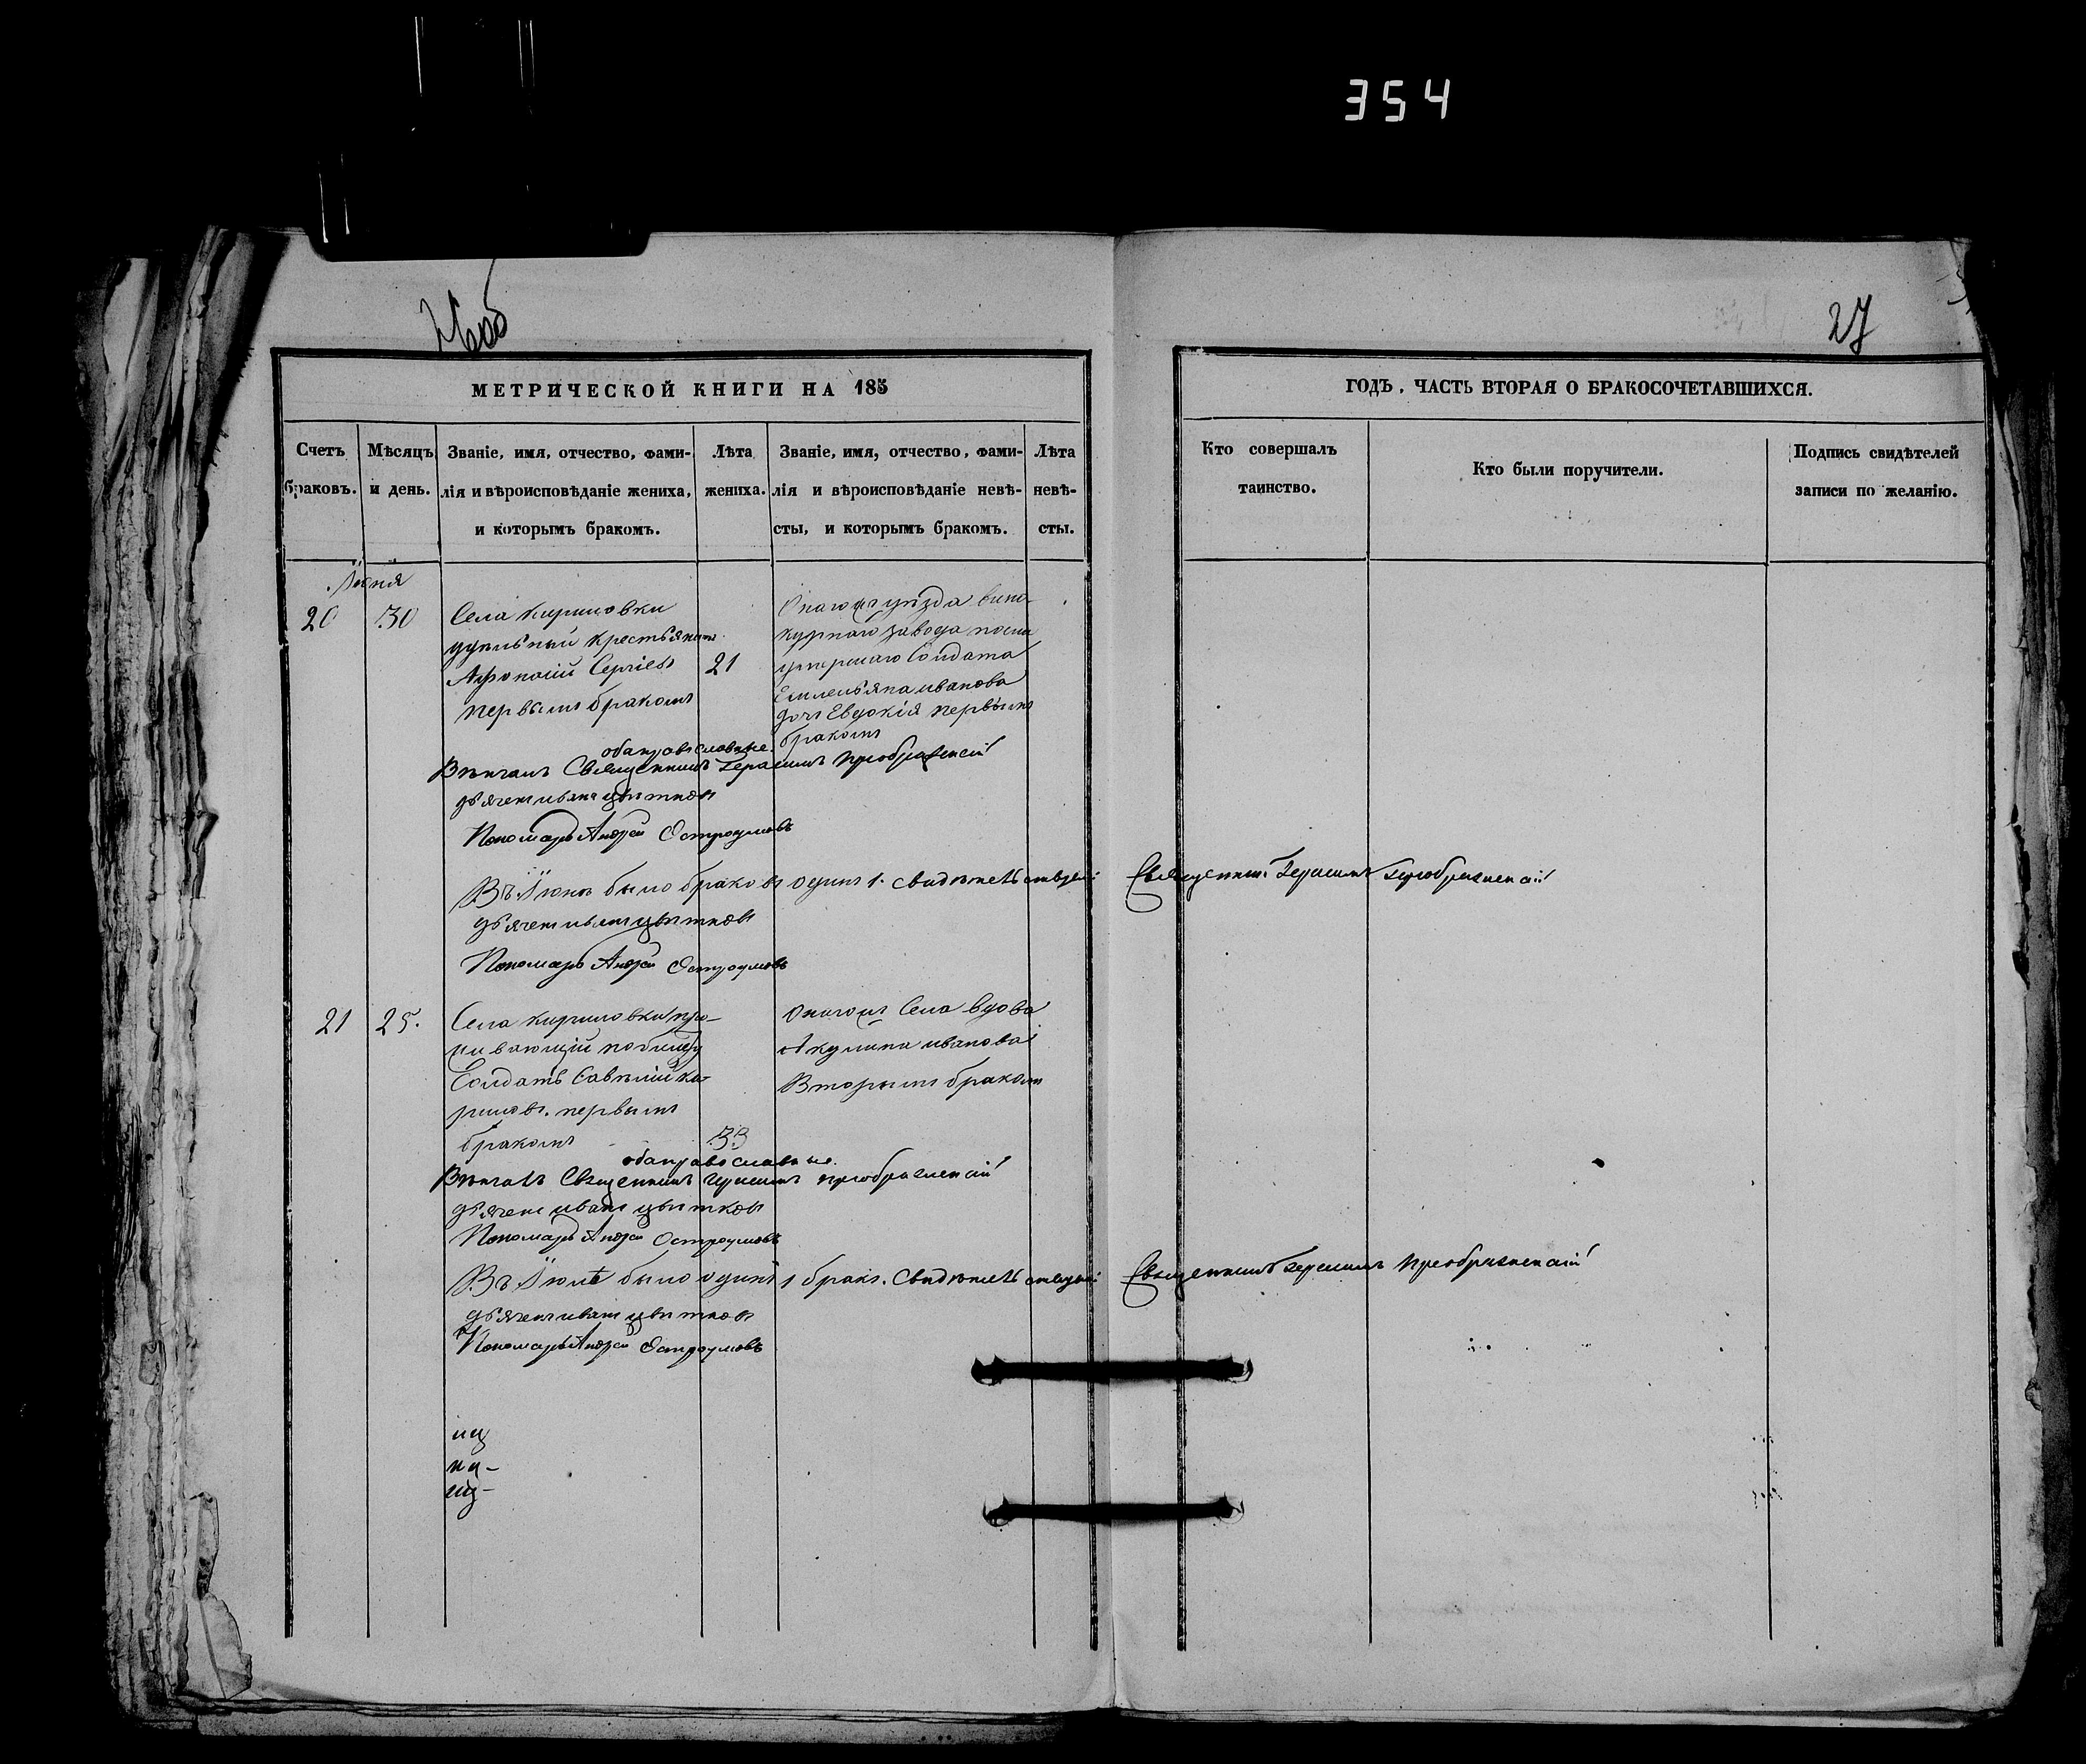 354
27
МЕТРИЧЕСКОЙ КНИГИ НА 185
ГОДЪ. ЧАСТЬ ВТОРАЯ О БРАКОСОЧЕТАВШИХСЯ.
Счетъ браковъ.
Мѣсяцъ и день.
Званіе, имя, отчество, фами-
лія и вѣроисповѣданіе жениха,
и которымъ бракомъ.
Лѣта
жениха.
Званіе, имя, отчество, фами-
лія и вѣроисповѣданіе невѣ-
сты, и которымъ бракомъ.
Лѣта
невѣ-
сты.
Кто совершалъ
таинство.
Кто были поручители.
Подпись свидѣтелей
записи по желанію.
Іюня
20
30
Села Кириловки
удѣльный крестьянинъ
Афонасій Сергіевъ
первымъ бракомъ
21
уѣзда вино-
курнаго завода
умершаго Солдата
Емельяна иванова
дочь Евдокія первымъ
бракомъ
оба православные.
Вѣнчалъ Священникъ Герасимъ Преображенскій
дьячекъ иванъ цвѣтковъ
Пономарь Андрей Остроумовъ
Въ Іюнѣ было браковъ одинъ 1. Свидѣтельствуемъ Священникъ Герасимъ Преображенскій
дьячекъ иванъ цвѣтковъ
Пономарь Андрей Остроумовъ
21
25.
Села Кириловки про-
живающій по билету
Солдатъ Савѣлій Ка-
первымъ
бракомъ
33
Онагожъ Села вдова
Акулина иванова
Вторымъ бракомъ
оба православные.
Вѣнчалъ Священникъ Герасимъ Преображенскій
дьячекъ иванъ цвѣтковъ
Пономарь Андрей Остроумовъ
Въ Іюлѣ было одинъ 1 бракъ. Свидѣтельствуемъ Священникъ Герасимъ Преображенскій
дьячекъ иванъ цвѣтковъ
Пономарь Андрей Остроумовъ